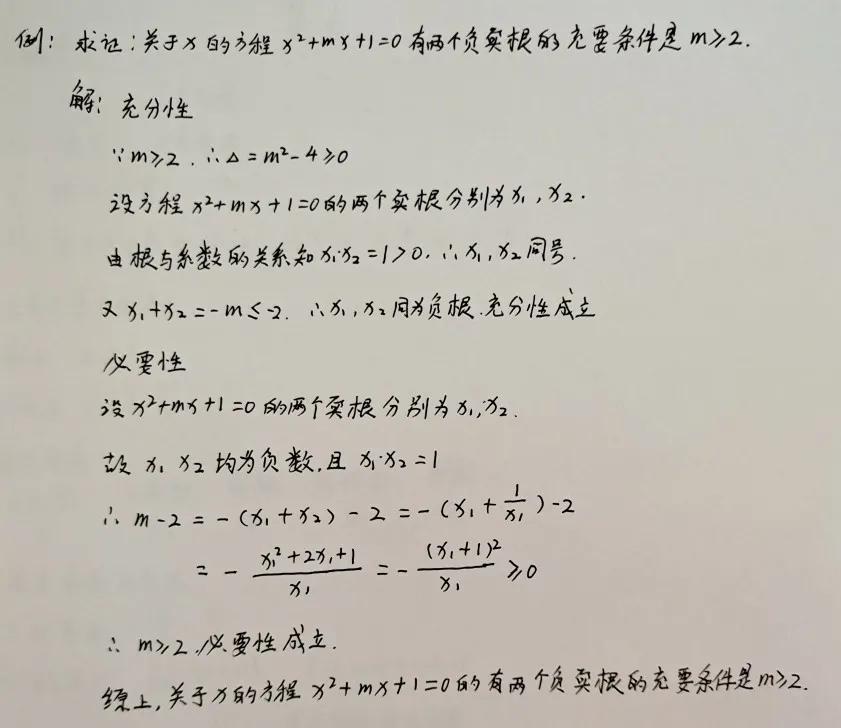 例: 求证:关于x的方程 x²+mx+1=0 有两个负实根的充要条件是 m≥2.
解: 充分性
∵m≥2. ∴Δ=m²-4≥0
设方程 x²+mx+1=0的两个实根分别为x₁,x₂.
由根与系数的关系知x₁·x₂=1>0. ∴x₁,x₂同号.
又 x₁+x₂=-m≤-2. ∴x₁,x₂同为负根.充分性成立
必要性
设 x²+mx+1=0的两个实根分别为x₁,x₂.
故 x₁ x₂ 均为负数,且 x₁·x₂=1
∴ m-2 = -(x₁+x₂)-2 = -(x₁+1/x₁)-2
= - (x₁²+2x₁+1)/x₁ = - (x₁+1)²/x₁ ≥0
∴ m≥2.必要性成立.
综上,关于x的方程 x²+mx+1=0的有两个负实根的充要条件是m≥2.